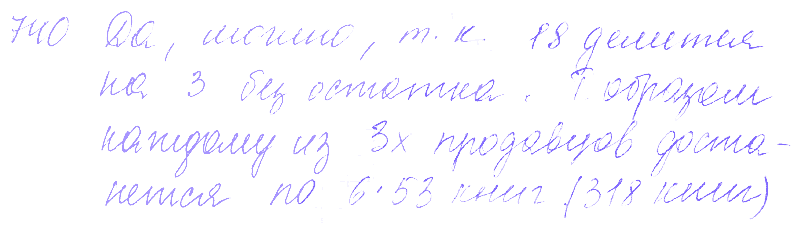 740 Да, можно, т.к. 18 делится
на 3 без остатка. Т. образом
каждому из 3х продавцов доста-
нется по 6·53 книг (318 книг)